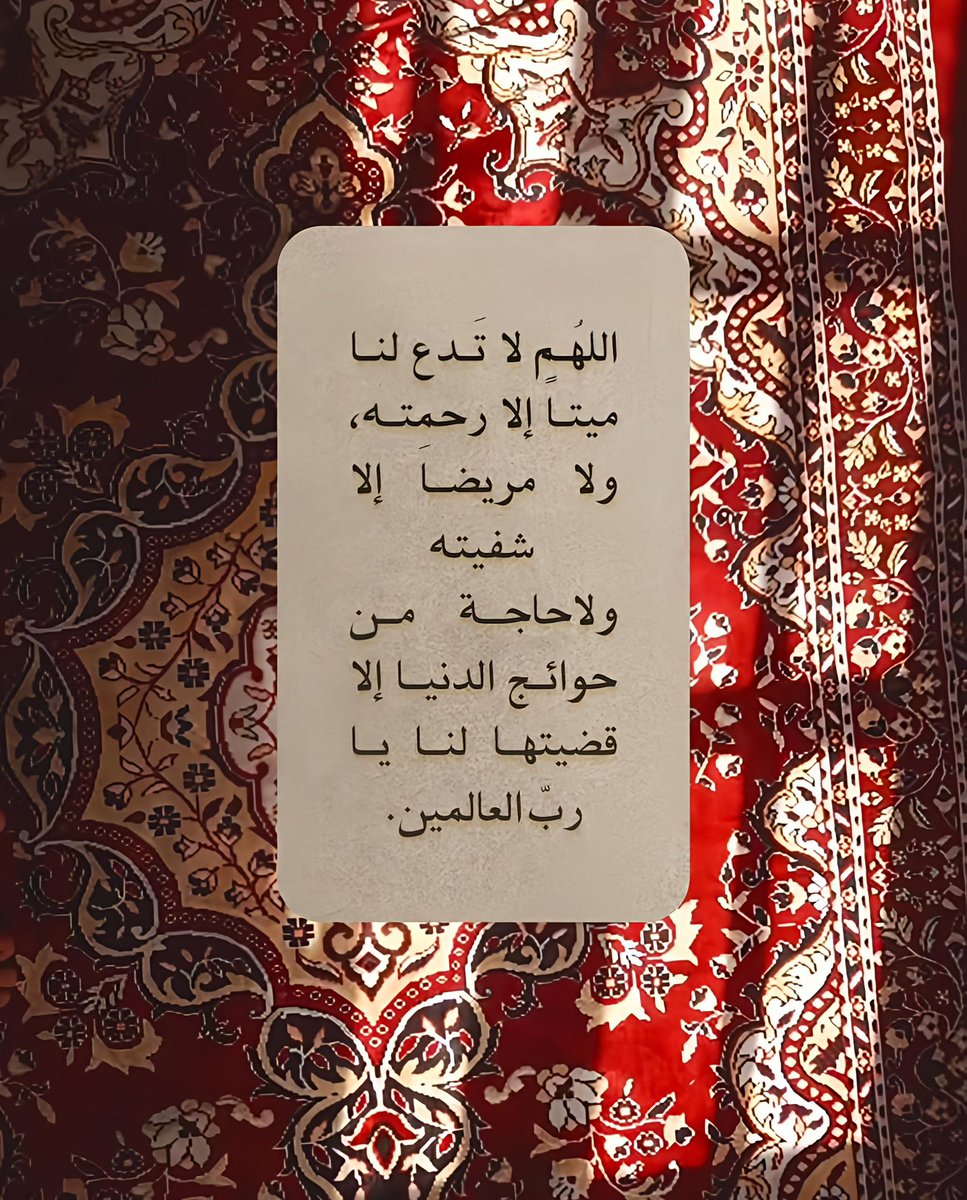 اللهُمٍ لا تَدع لنا
ميتاً إلا رحمته،
ولا مريضاَ إلا
شفيته
ولاحاجة من
حوائج الدنيا إلا
قضيتها لنا يا
ربّ العالمين.